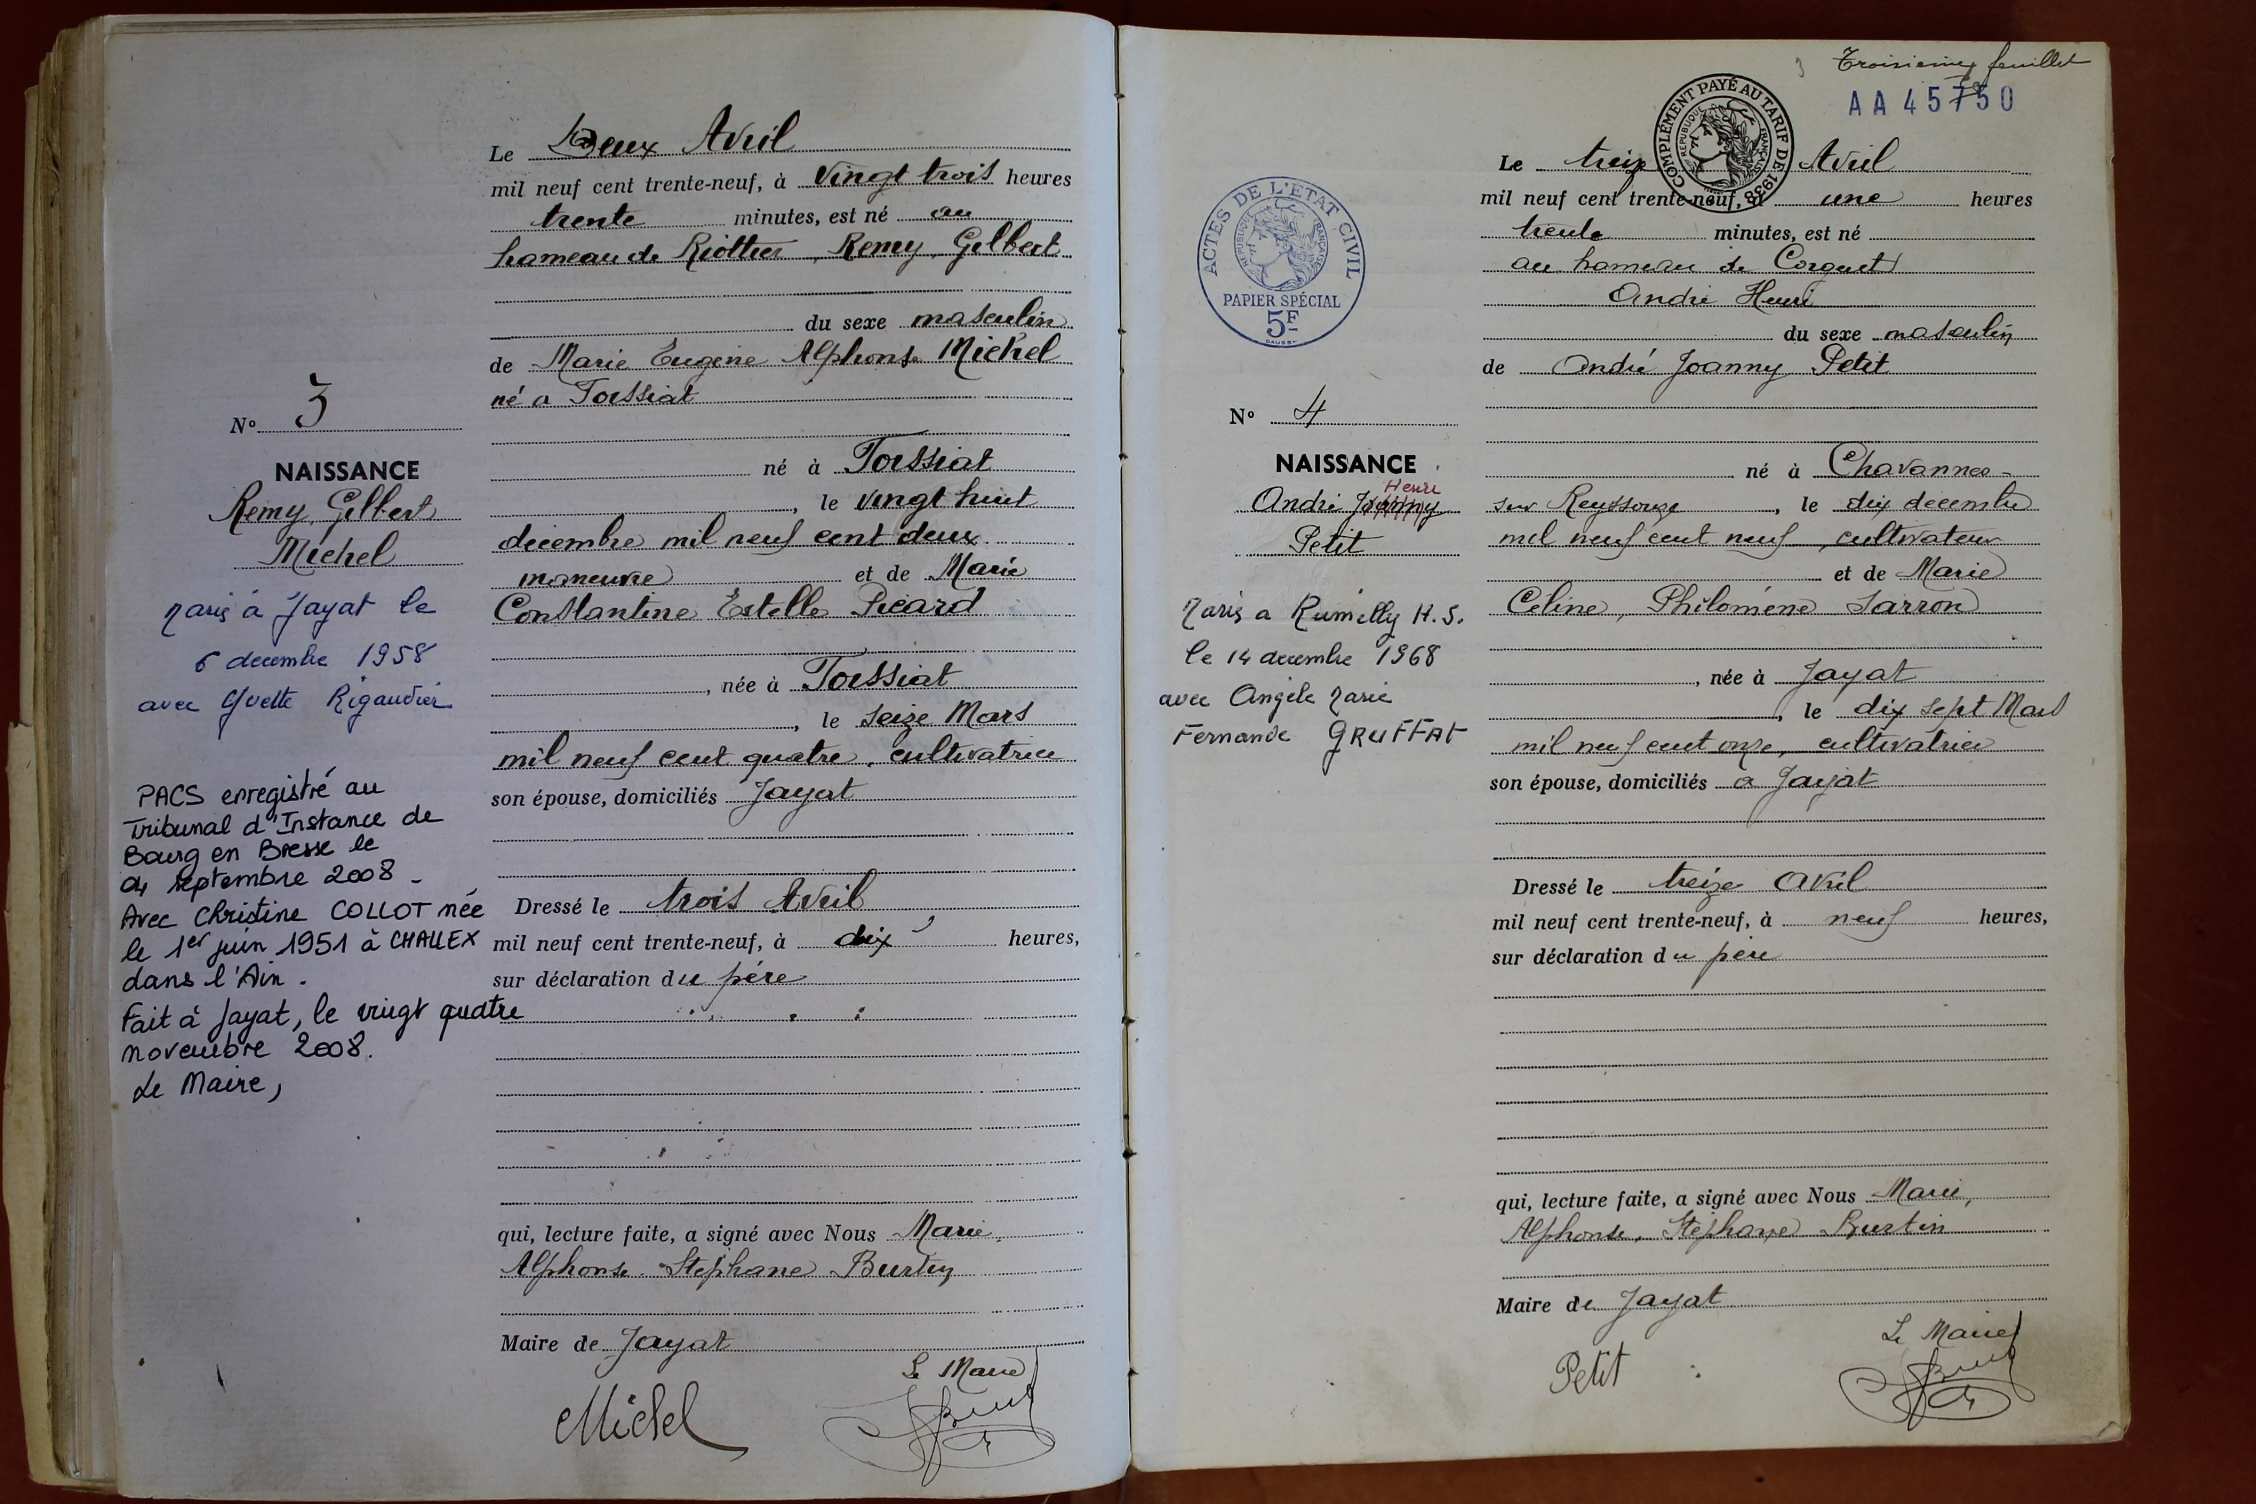 Le Deux Avril
mil neuf cent trente-neuf, à vingt trois heures
trente minutes, est né au
hameau de Riottier, Remy, Gilbert
du sexe masculin
de Marie Eugène Alphonse Michel
né a Tossiat
né à Tossiat
, le vingt huit
décembre mil neuf cent deux
manœuvre et de Marie
Constantine Estelle Picard
, née à Tossiat
, le seize Mars
mil neuf cent quatre, cultivatrice
son épouse, domiciliés Jayat
Dressé le trois Avril
mil neuf cent trente-neuf, à dix heures,
sur déclaration du père
qui, lecture faite, a signé avec Nous Marie,
Alphonse Stéphane Burtin
Maire de Jayat
Le Maire
Michel
N° 3
NAISSANCE
Remy, Gilbert
Michel
Marié à Jayat le
6 decembre 1958
avec Yvette Rigaudier
PACS enregistré au
Tribunal d'Instance de
Bourg en Bresse le
04 septembre 2008 -
Avec Christine COLLOT née
le 1er juin 1951 à CHALLEX
dans l'Ain.
Fait à Jayat, le vingt quatre
novembre 2008.
Le Maire,
3 Troisième feuillet
AA 45750
COMPLÉMENT PAYÉ AU TARIF DE 1938
REPUBLIQUE FRANÇAISE
Le treize Avril
mil neuf cent trente-neuf, à une heures
trente minutes, est né
au hameau de Corquet
André Henri
du sexe masculin
de André Joanny Petit
né à Chavannes-
sur Reyssouze, le dix décembre
mil neuf cent neuf, cultivateur
et de Marie
Celine, Philomène Sarron
, née à Jayat
, le dix sept Mars
mil neuf cent onze, cultivatrice
son épouse, domiciliés a Jayat
Dressé le treize Avril
mil neuf cent trente-neuf, à neuf heures,
sur déclaration du père
qui, lecture faite, a signé avec Nous Marie,
Alphonse, Stéphane Burtin
Maire de Jayat
Le Maire
Petit
ACTES DE L'ETAT CIVIL
REPUBLIQUE FRANÇAISE
PAPIER SPÉCIAL
5F
N° 4
NAISSANCE
Henri
André Joanny
Petit
Marié a Rumilly H.S.
le 14 decembre 1968
avec Angèle Marie
Fernande GRUFFAT